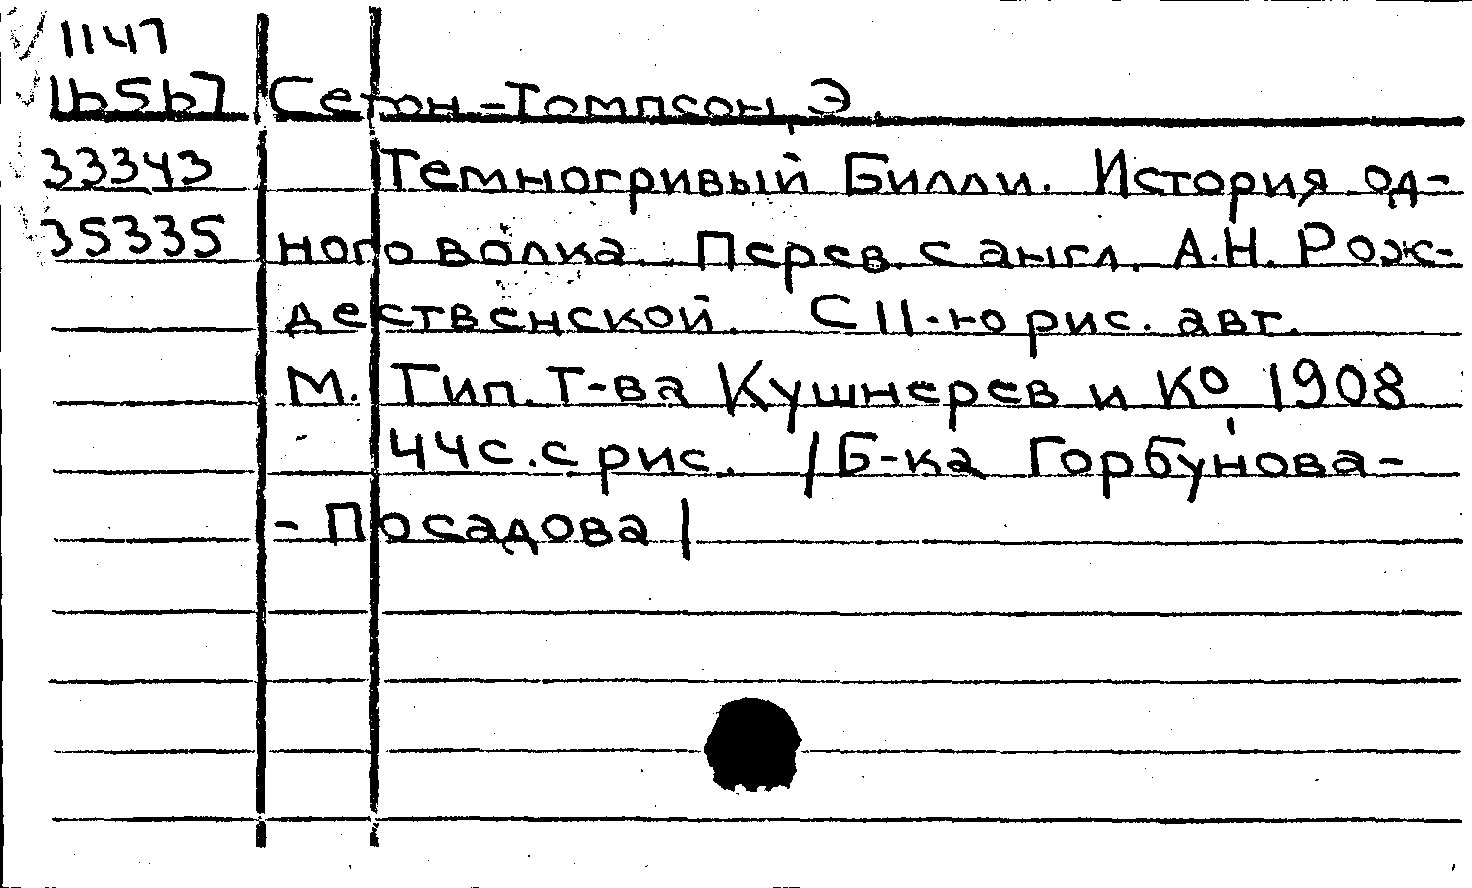 1147
16567 Сетон-Томпсон, Э.
33343 Темногривый Билли. История од-
35335 ного волка. Перев. с англ. А.Н. Рож-
дественской. С 11-ю рис. авт.
М. Тип. Т-ва Кушнерев и Ко 1908
44с. с рис. /Б-ка Горбунова-
-Посадова/